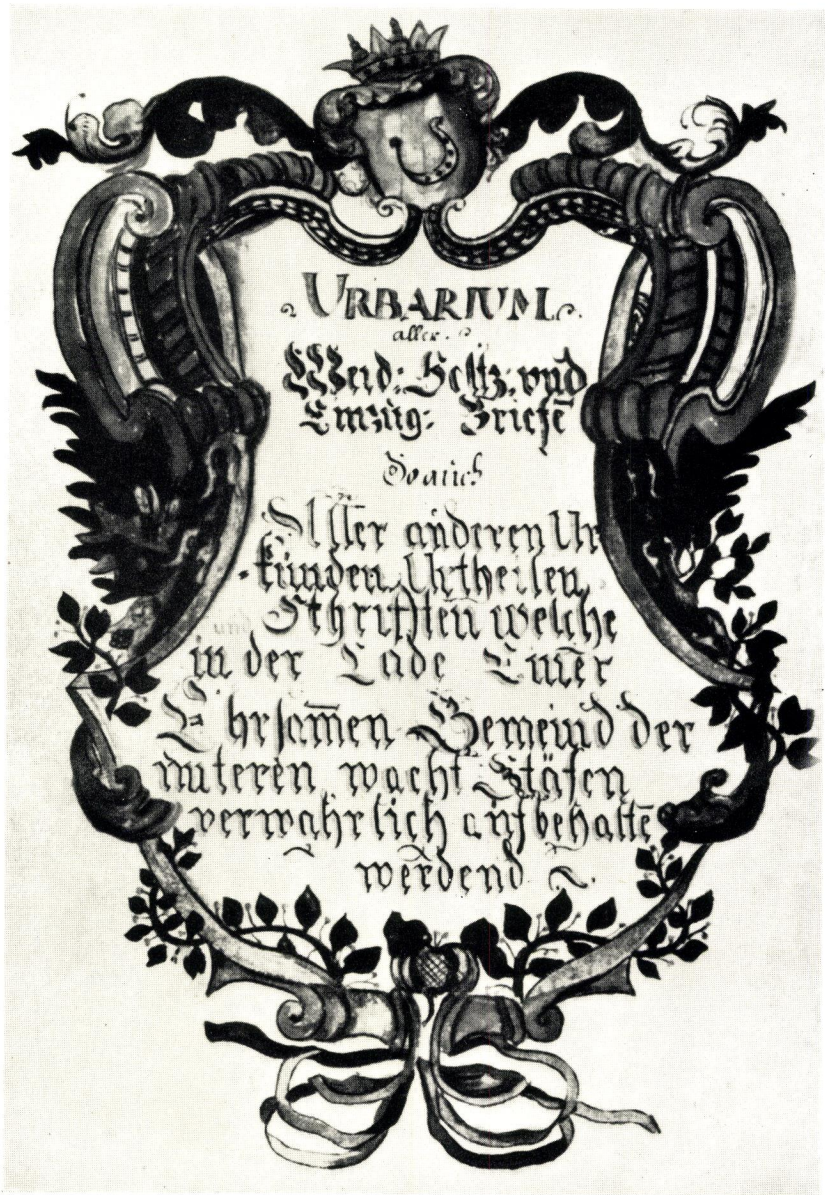 URBARIUM
aller
Weid: Holtz: vnd
Einzüg: Briefe
So auch
Aller anderen Ur
künden, Urtheilen,
und Schrifften welche
in der Lade Einer
Ehrsamen Gemeind der
unteren wacht Stäfen
verwahrlich aufbehalte
werdend